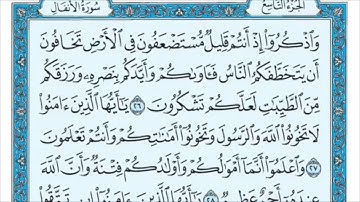 الجزء التاسع سورة الأنفال
وَاذْكُرُوا إِذْ أَنتُمْ قَلِيلٌ مُّسْتَضْعَفُونَ فِي الْأَرْضِ تَخَافُونَ
أَن يَتَخَطَّفَكُمُ النَّاسُ فَآوَىٰكُمْ وَأَيَّدَكُم بِنَصْرِهِ وَرَزَقَكُم
مِّنَ الطَّيِّبَٰتِ لَعَلَّكُمْ تَشْكُرُونَ ٢٦ يَٰأَيُّهَا الَّذِينَ ءَامَنُوا
لَا تَخُونُوا اللَّهَ وَالرَّسُولَ وَتَخُونُوا أَمَٰنَٰتِكُمْ وَأَنتُمْ تَعْلَمُونَ
٢٧ وَاعْلَمُوا أَنَّمَا أَمْوَٰلُكُمْ وَأَوْلَٰدُكُمْ فِتْنَةٌ وَأَنَّ اللَّهَ
عِندَهُ أَجْرٌ عَظِيمٌ ٢٨ يَٰأَيُّهَا الَّذِينَ ءَامَنُوا إِن تَتَّقُوا